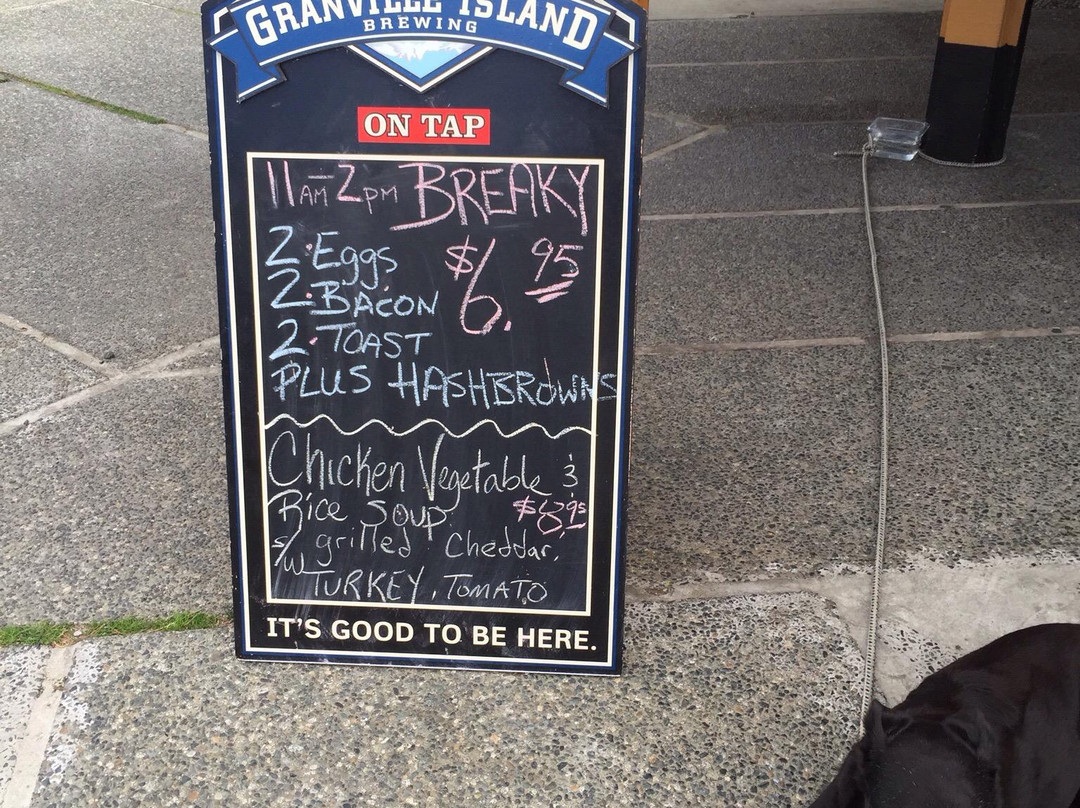 GRANVILLE ISLAND
BREWING
ON TAP
11AM-2PM BREAKY
2·Eggs $6.95
2·BACON
2·TOAST
PLUS HASHBROWNS
Chicken Vegetable &
Rice Soup $8.95
s/w grilled Cheddar,
TURKEY, TOMATO
IT'S GOOD TO BE HERE.